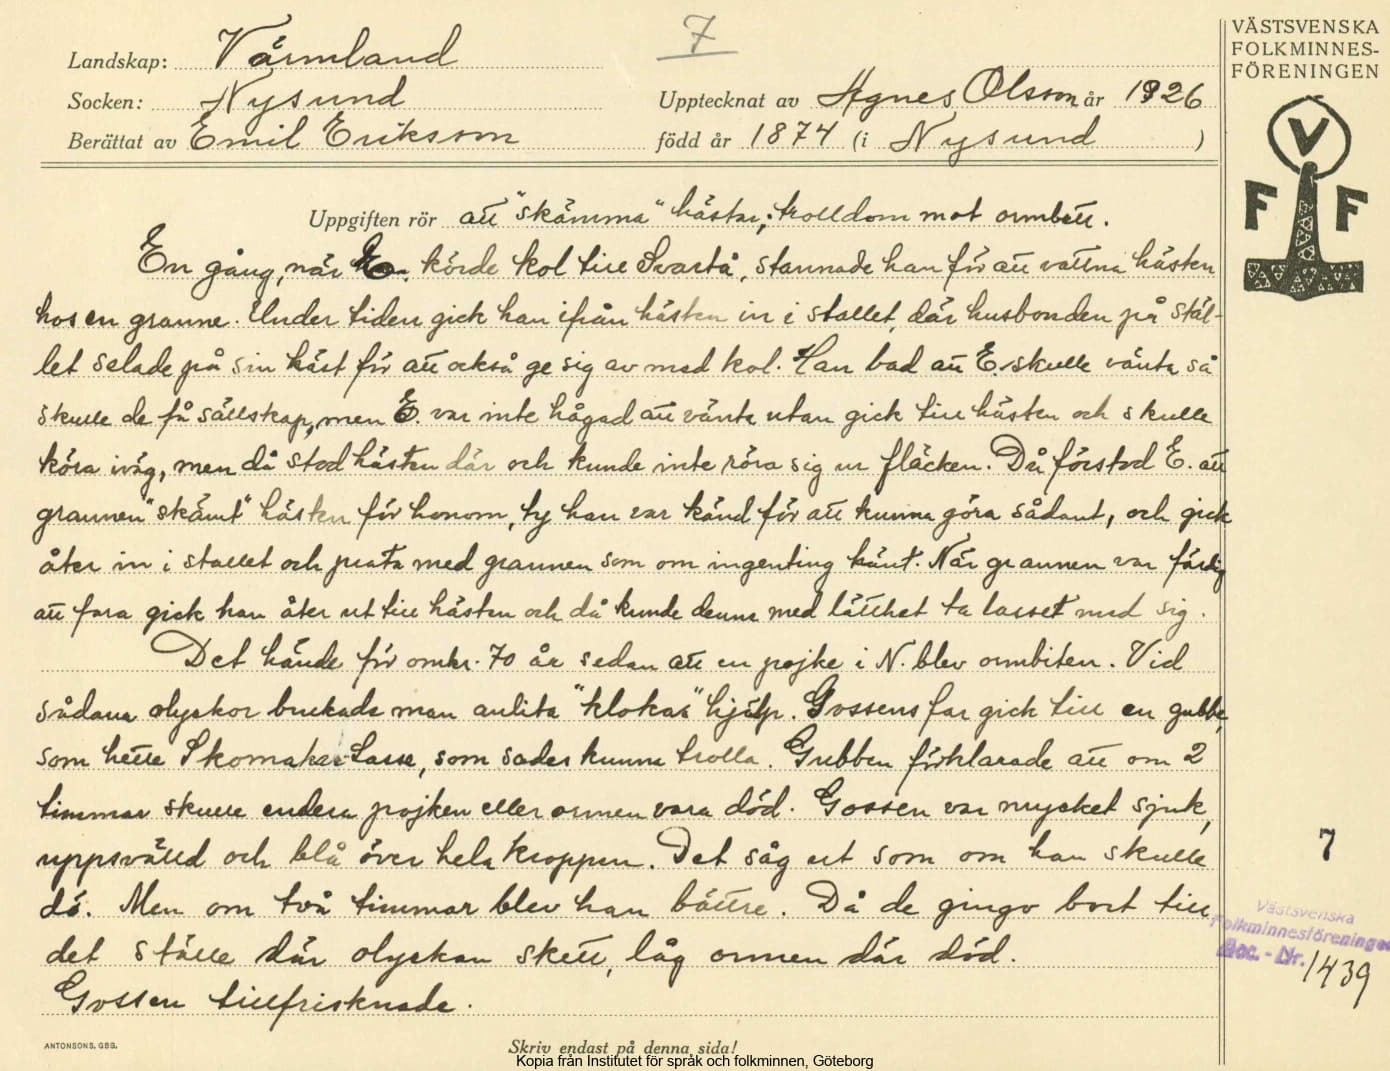 7
VÄSTSVENSKA
FOLKMINNES-
FÖRENINGEN
Landskap: Värmland
Socken: Nysund Upptecknat av Agnes Olsson år 1926
Berättat av Emil Eriksson född år 1874 (i Nysund )
V
F F
Uppgiften rör att "skämma" hästar; trolldom mot ormbett.
En gång, när E. körde kol till Svartå, stannade han för att vattna hästen
hos en granne. Under tiden gick han ifrån hästen in i stallet, där husbonden på stäl-
let selade på sin häst för att också ge sig av med kol. Han bad att E. skulle vänta så
skulle de få sällskap, men E. var inte hågad att vänta utan gick till hästen och skulle
köra iväg, men då stod hästen där och kunde inte röra sig ur fläcken. Då förstod E. att
grannen "skämt" hästen för honom, ty han var känd för att kunna göra sådant, och gick
åter in i stallet och prata med grannen som om ingenting hänt. När grannen var färdig
att fara gick han åter ut till hästen och då kunde denne med lätthet ta lasset med sig.
Det hände för omkr. 70 år sedan att en pojke i N. blev ormbiten. Vid
sådana olyckor brukade man anlita "klokas" hjälp. Gossens far gick till en gubbe,
som hette Skomakar-Lasse, som sades kunna trolla. Gubben förklarade att om 2
timmar skulle endera pojken eller ormen vara död. Gossen var mycket sjuk,
uppsvälld och blå över hela kroppen. Det såg ut som om han skulle
dö. Men om två timmar blev han bättre. Då de gingo bort till
det ställe där olyckan skett, låg ormen där död.
Gossen tillfrisknade.
7
Västsvenska
Folkminnesföreningen
Acc. - Nr. 1439
ANTONSONS, GBG.
Skriv endast på denna sida!
Kopia från Institutet för språk och folkminnen, Göteborg